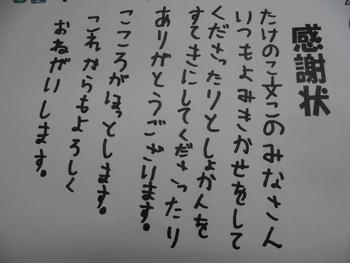 感謝状
たけのこ文このみなさん
いつもよみきかせをして
くださったりとしょかんを
すてきにしてくださったり
ありがとうございます。
こころがほっとします。
これからもよろしく
おねがいします。